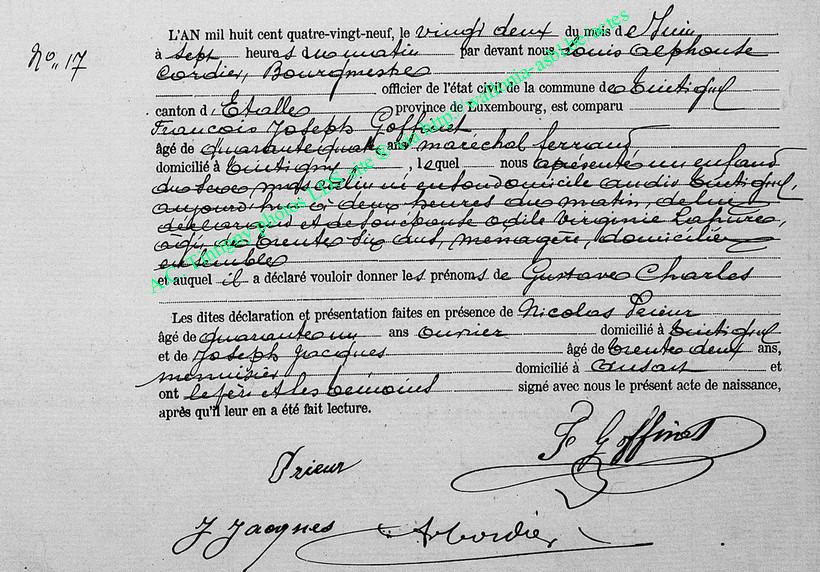 No. 17
L'AN mil huit cent quatre-vingt-neuf, le vingt deux du mois de Juin
à sept heures du matin par devant nous Louis Alphonse
Cordier, Bourgmestre
officier de l'état civil de la commune de Tintigny
canton d'Etalle province de Luxembourg, est comparu
François Joseph Goffinet
âgé de quarante quatre ans maréchal ferrand
domicilié à Tintigny, lequel nous a présenté un enfant
du sexe masculin né en son domicile audit Tintigny,
aujourd'hui à deux heures du matin, de lui
déclarant et de son épouse Odile Virginie
âgée de trente six ans, ménagère, domiciliés
ensemble
et auquel il a déclaré vouloir donner les prénoms de Gustave Charles
Les dites déclaration et présentation faites en présence de Nicolas Prieur
âgé de quarante un ans ouvrier domicilié à Tintigny
et de Joseph Jacques âgé de trente deux ans,
menuisier domicilié à Ansart et
ont le père et les témoins signé avec nous le présent acte de naissance,
après qu'il leur en a été fait lecture.
F Goffinet
Prieur
J Jacques Cordier